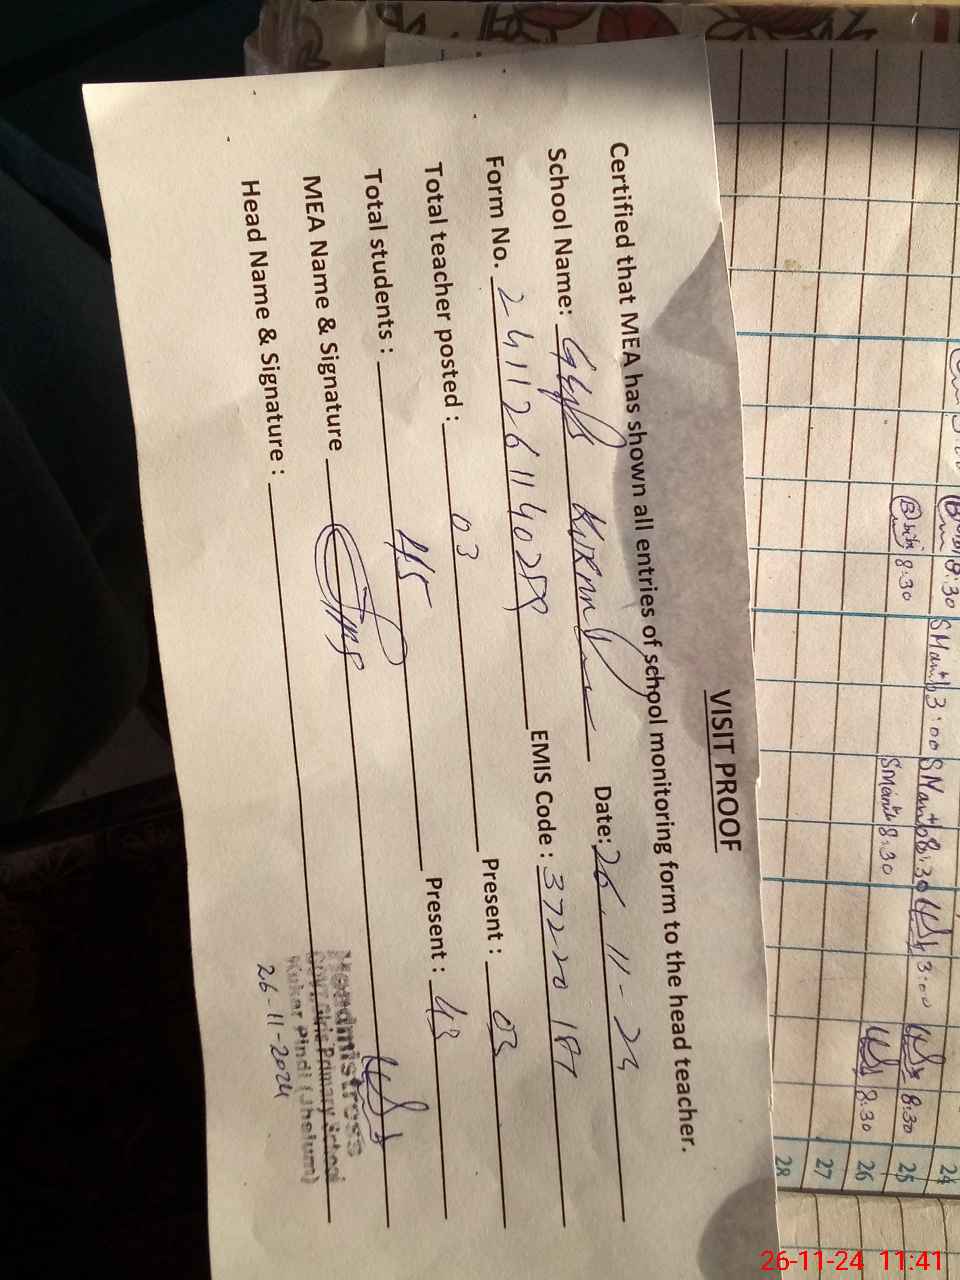 VISIT PROOF
Certified that MEA has shown all entries of school monitoring form to the head teacher.
School Name: GGPS Date: 26.11-24
Form No. 24112611402 EMIS Code : 37220187
Total teacher posted : 03 Present : 03
Total students : 45 Present : 43
MEA Name & Signature
Head Name & Signature :
Headmistress
Govt. Girls Primary School
Kukar Pindi (Jhelum)
26-11-2024
8:30 3:00 8:30 3:00 8:30 24
8:30 8:30 8:30 25
8:30 26
27
28
26-11-24 11:41